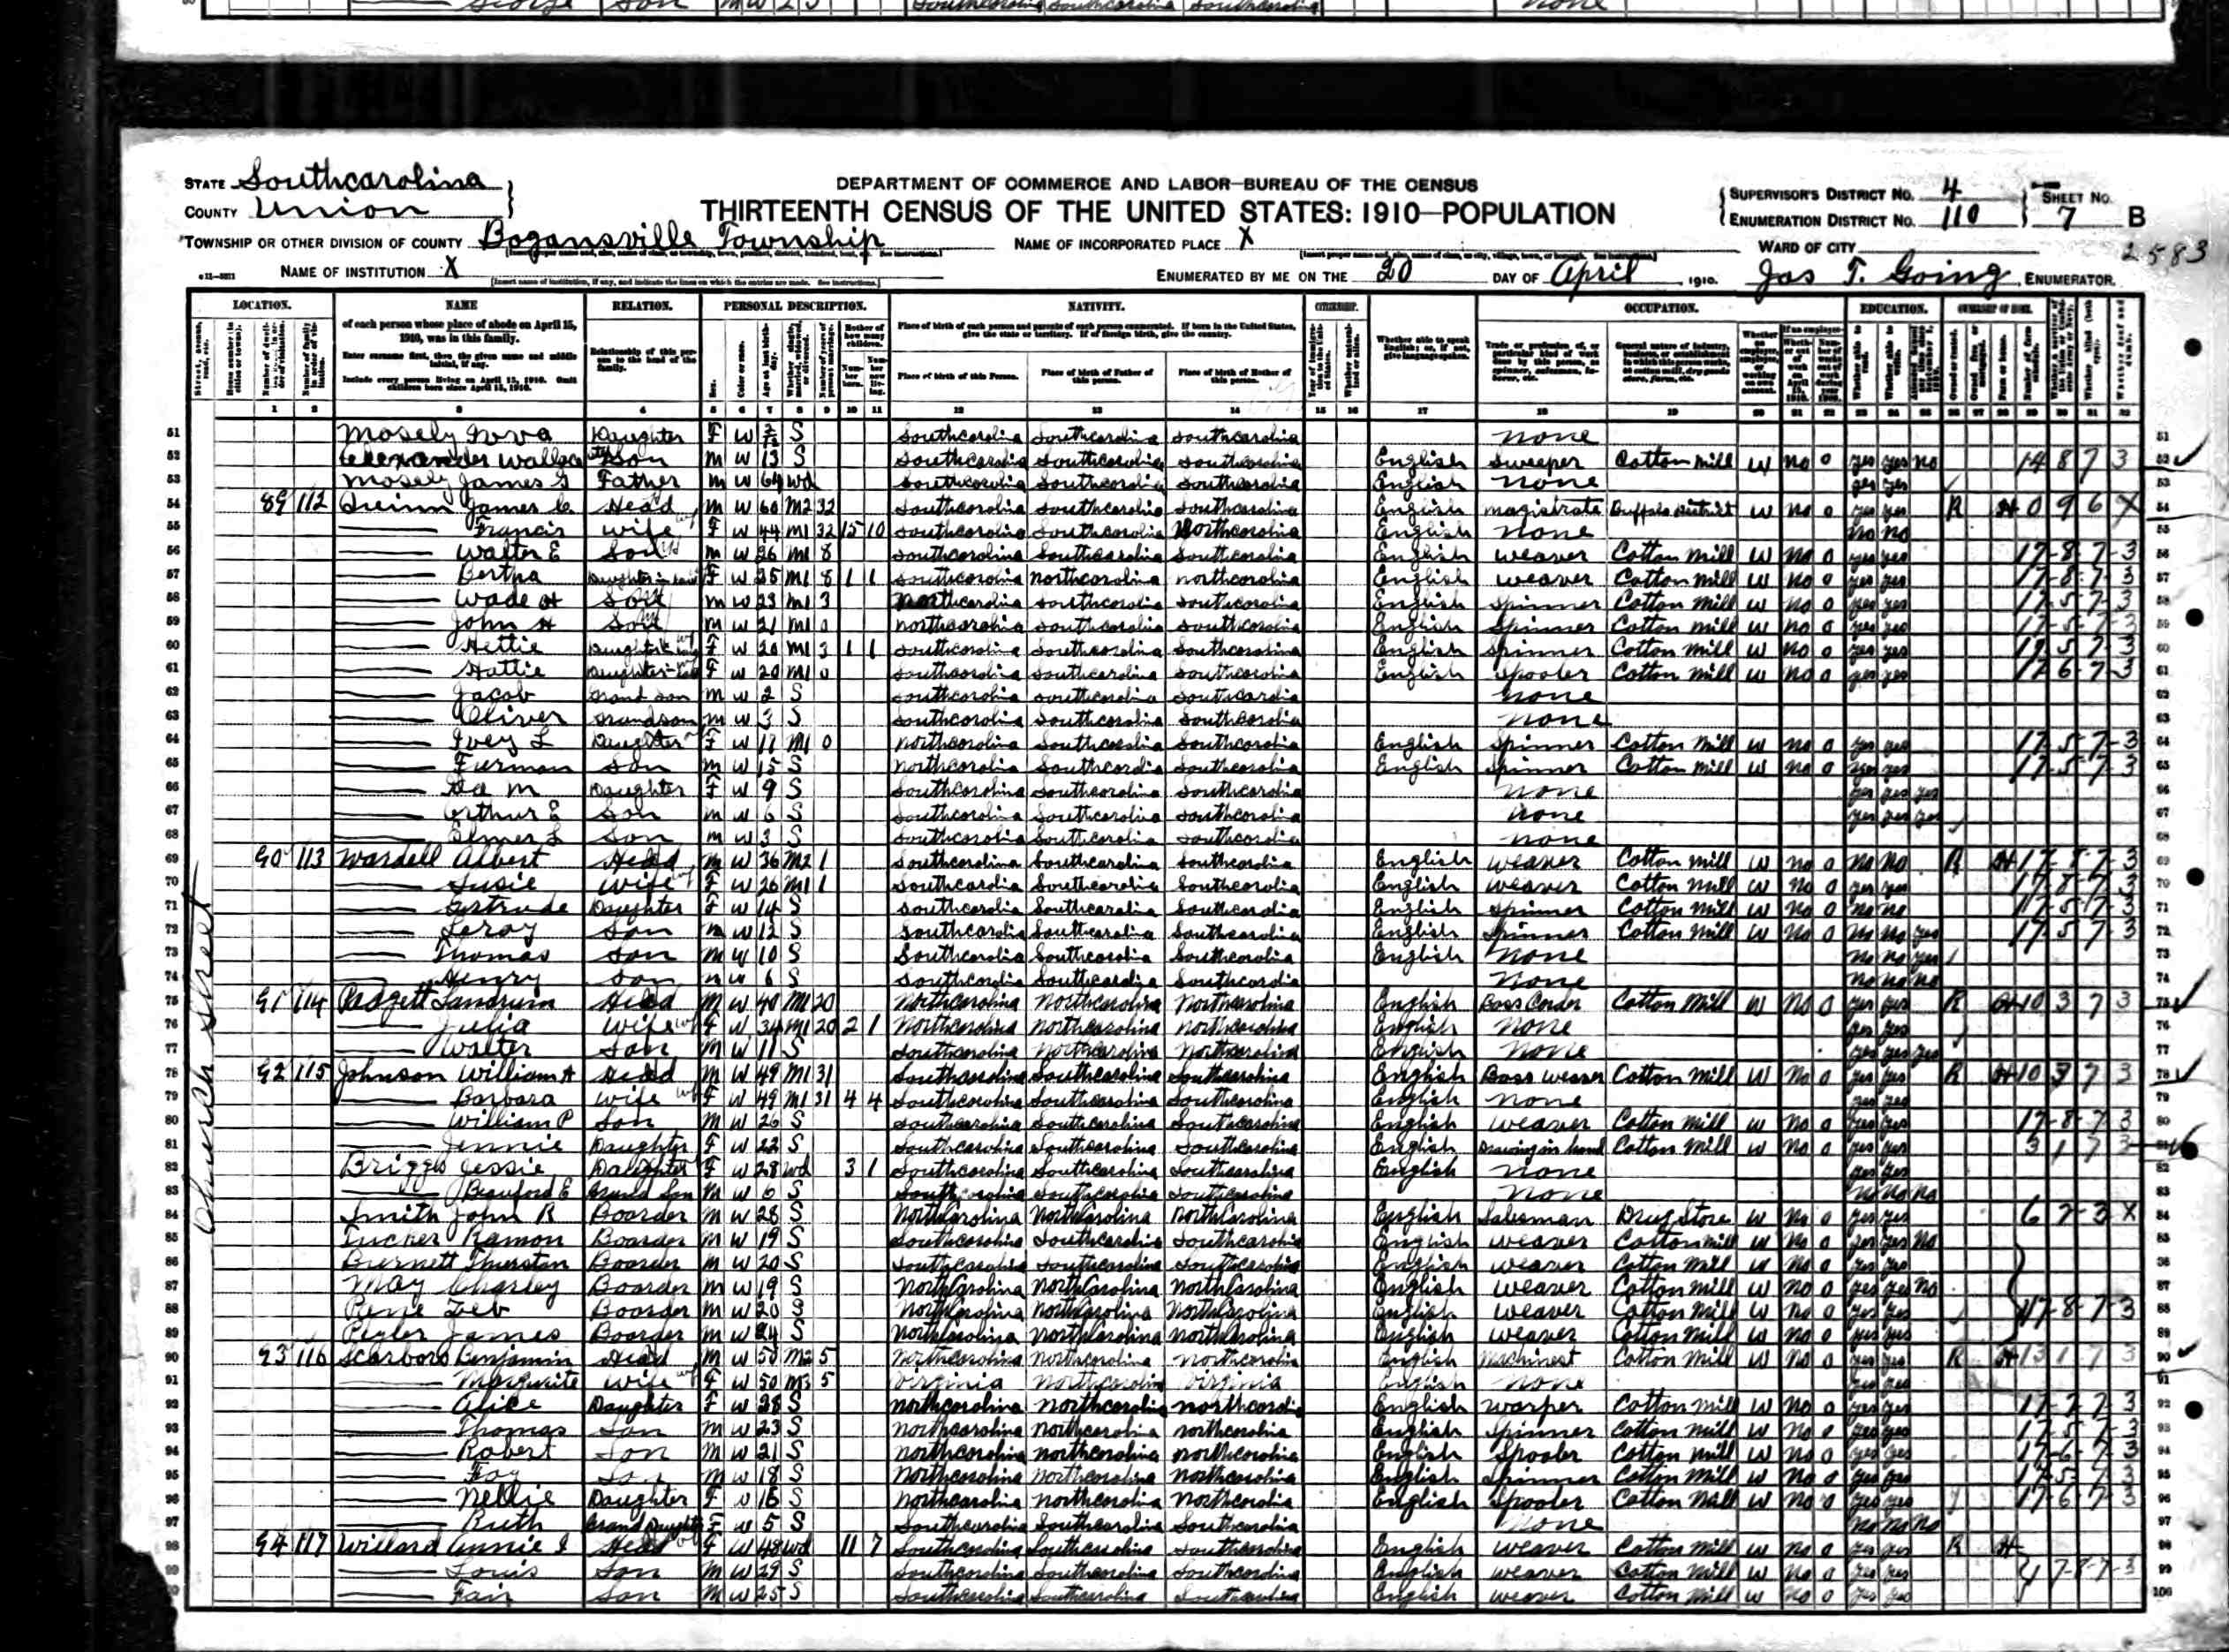 George Son M W 23 Southcarolina Southcarolina Southcarolina none
STATE Southcarolina
COUNTY Union
TOWNSHIP OR OTHER DIVISION OF COUNTY Bogansville Township
NAME OF INSTITUTION X
DEPARTMENT OF COMMERCE AND LABOR—BUREAU OF THE CENSUS
THIRTEENTH CENSUS OF THE UNITED STATES: 1910—POPULATION
NAME OF INCORPORATED PLACE X
ENUMERATED BY ME ON THE 20 DAY OF April, 1910. Jas T. Going, ENUMERATOR.
SUPERVISOR'S DISTRICT NO. 4
ENUMERATION DISTRICT NO. 110
SHEET NO. 7 B
WARD OF CITY
2583
LOCATION. NAME RELATION. PERSONAL DESCRIPTION. NATIVITY. CITIZENSHIP. OCCUPATION. EDUCATION. OWNERSHIP OF HOME.
of each person whose place of abode on April 15, 1910, was in this family.
Enter surname first, then the given name and middle initial, if any.
Include every person living on April 15, 1910. Omit children born since April 15, 1910.
Relationship of this person to the head of the family.
Place of birth of each person and parents of each person enumerated. If born in the United States, give the state or territory. If of foreign birth, give the country.
Place of birth of this Person. Place of birth of Father of this person. Place of birth of Mother of this person.
1 2 3 4 5 6 7 8 9 10 11 12 13 14 15 16 17 18 19 20 21 22 23 24 25 26 27 28 29 30 31 32
Church Street
51 Mosely Daughter F W S Southcarolina Southcarolina Southcarolina none
52 Alexander Wallace Son M W 13 S Southcarolina Southcarolina Southcarolina English Sweeper Cotton Mill W no 0 yes yes no 14 8 7 3
53 Mosely James Father M W 64 Wd Southcarolina Southcarolina Southcarolina English none yes yes
54 89 112 James C Head M W 60 M2 32 Southcarolina Southcarolina Southcarolina English Magistrate Buffalo District W no 0 yes yes R H 0 9 6 X
55 Francis Wife F W 44 M1 32 15 10 Southcarolina Southcarolina Northcarolina English none no no
56 Walter E Son M W 26 M1 8 Southcarolina Southcarolina Southcarolina English weaver Cotton Mill W no 0 yes yes 17-8-7-3
57 Bertha Daughter in law F W 25 M1 8 1 1 Southcarolina Northcarolina Northcarolina English weaver Cotton Mill W no 0 yes yes 17-8-7-3
58 Wade H Son M W 23 M1 3 Northcarolina Southcarolina Southcarolina English Spinner Cotton Mill W no 0 yes yes 17-5-7-3
59 John H Son M W 21 M1 0 Northcarolina Southcarolina Southcarolina English Spinner Cotton Mill W no 0 yes yes 17-5-7-3
60 Hettie Daughter in law F W 20 M1 3 1 1 Southcarolina Southcarolina Southcarolina English Spinner Cotton Mill W no 0 yes yes 17-5-7-3
61 Hattie Daughter in law F W 20 M1 0 Southcarolina Southcarolina Southcarolina English Spooler Cotton Mill W no 0 yes yes 17-6-7-3
62 Jacob Grand son M W 2 S Southcarolina Southcarolina Southcarolina none
63 Oliver Grandson M W 3 S Southcarolina Southcarolina Southcarolina none
64 Ivey L Daughter F W M1 0 Northcarolina Southcarolina Southcarolina English Spinner Cotton Mill W no 0 yes yes 17-5-7-3
65 Furman Son M W 15 S Northcarolina Southcarolina Southcarolina English Spinner Cotton Mill W no 0 yes yes 17-5-7-3
66 M Daughter F W 9 S Southcarolina Southcarolina Southcarolina none yes yes yes
67 Arthur E Son M W 6 S Southcarolina Southcarolina Southcarolina none yes yes yes
68 Elmer L Son M W 3 S Southcarolina Southcarolina Southcarolina none
69 90 113 Wardell Albert Head M W 36 M2 1 Southcarolina Southcarolina Southcarolina English weaver Cotton Mill W no 0 no no R H 17-8-7-3
70 Susie Wife F W 26 M1 1 Southcarolina Southcarolina Southcarolina English weaver Cotton Mill W no 0 yes yes 17-8-7-3
71 Gertrude Daughter F W 14 S Southcarolina Southcarolina Southcarolina English Spinner Cotton Mill W no 0 no no 17-5-7-3
72 Leroy Son M W 12 S Southcarolina Southcarolina Southcarolina English Spinner Cotton Mill W no 0 no no yes 17-5-7-3
73 Thomas Son M W 10 S Southcarolina Southcarolina Southcarolina English none no no yes
74 Henry Son M W 6 S Southcarolina Southcarolina Southcarolina none no no no
75 91 114 Padgett Landrum Head M W 40 M1 20 Northcarolina Northcarolina Northcarolina English Boss Carder Cotton Mill W no 0 yes yes R H 10 3 7 3
76 Julia Wife F W 34 M1 20 2 1 Northcarolina Northcarolina Northcarolina English none yes yes
77 Walter Son M W 11 S Southcarolina Northcarolina Northcarolina English none yes yes yes
78 92 115 Johnson William A Head M W 49 M1 31 Southcarolina Southcarolina Southcarolina English Boss weaver Cotton Mill W no 0 yes yes R H 10 3 7 3
79 Barbara Wife F W 49 M1 31 4 4 Southcarolina Southcarolina Southcarolina English none yes yes
80 William P Son M W 26 S Southcarolina Southcarolina Southcarolina English weaver Cotton Mill W no 0 yes yes 17-8-7-3
81 Jennie Daughter F W 22 S Southcarolina Southcarolina Southcarolina English Drawing in hand Cotton Mill W no 0 yes yes 3 1 7 3
82 Briggs Jessie Daughter F W 28 Wd 3 1 Southcarolina Southcarolina Southcarolina English none yes yes
83 Beauford E Grand Son M W 6 S Southcarolina Southcarolina Southcarolina none no no no
84 Smith John R Boarder M W 28 S NorthCarolina NorthCarolina NorthCarolina English Salesman Drug Store W no 0 yes yes 6 7 3 X
85 Tucker Ramon Boarder M W 19 S Southcarolina Southcarolina Southcarolina English weaver Cotton Mill W no 0 yes yes no
86 Burnett Thurston Boarder M W 20 S Southcarolina Southcarolina Southcarolina English weaver Cotton Mill W no 0 yes yes
87 May Charley Boarder M W 19 S NorthCarolina NorthCarolina NorthCarolina English weaver Cotton Mill W no 0 yes yes no
88 Zeb Boarder M W 20 S NorthCarolina NorthCarolina NorthCarolina English weaver Cotton Mill W no 0 yes yes 17-8-7-3
89 James Boarder M W 24 S NorthCarolina NorthCarolina NorthCarolina English weaver Cotton Mill W no 0 yes yes
90 93 116 Scarboro Benjamin Head M W 50 M2 5 Northcarolina Northcarolina Northcarolina English Machinest Cotton Mill W no 0 yes yes R H 13 1 7 3
91 Margurite Wife F W 50 M3 5 Virginia Northcarolina Virginia English none yes yes
92 Alice Daughter F W 28 S Northcarolina Northcarolina Northcarolina English warper Cotton Mill W no 0 yes yes 17-7-7-3
93 Thomas Son M W 23 S Northcarolina Northcarolina Northcarolina English Spinner Cotton Mill W no 0 yes yes 17-5-7-3
94 Robert Son M W 21 S Northcarolina Northcarolina Northcarolina English Spooler Cotton Mill W no 0 yes yes 17-6-7-3
95 Fay Son M W 18 S Northcarolina Northcarolina Northcarolina English Spinner Cotton Mill W no 0 yes yes 17-5-7-3
96 Nellie Daughter F W 16 S Northcarolina Northcarolina Northcarolina English Spooler Cotton Mill W no 0 yes yes 17-6-7-3
97 Ruth Grand Daughter F W 5 S Southcarolina Southcarolina Southcarolina none no no no
98 94 117 Willard Annie I Head F W 48 Wd 11 7 Southcarolina Southcarolina Southcarolina English weaver Cotton Mill W no 0 yes yes R H
99 Louis Son M W 29 S Southcarolina Southcarolina Southcarolina English weaver Cotton Mill W no 0 yes yes 7-8-7-3
100 Fair Son M W 25 S Southcarolina Southcarolina Southcarolina English weaver Cotton Mill W no 0 yes yes